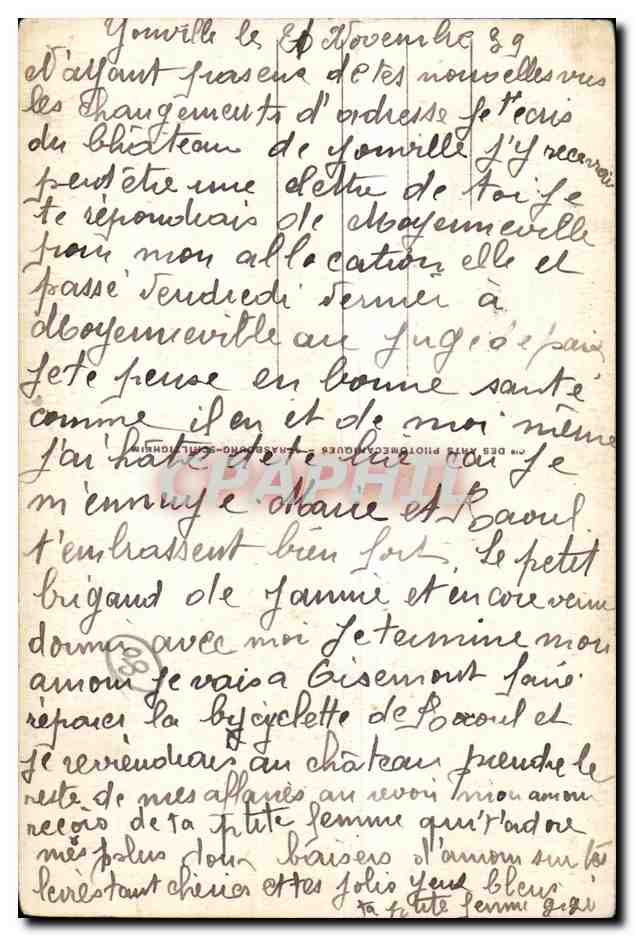 Yonville le 21 Novembre 39
N'ayant pas eue de tes nouvelles vus
les changements d'adresse je t'ecris
du Château de Yonville j'y recevrais
peut être une lettre de toi je
te répondrais de Moyenneville
pour mon allocation elle et
passé Vendredi dernier à
Moyenneville au juge de paix
Je te pense en bonne santé
comme il en et de moi même
j'ai hâte de te lire car je
CIE DES ARTS PHOTOMECANIQUES - STRASBOURG-SCHILTIGHEIM
CPAPHIL
m'ennuye Marie et Raoul
t'embrassent bien fort. Le petit
brigand de Jannie et encore venue
dormir avec moi Je termine mon
amour je vais a Oisemont faire
réparer la bycyclette de Raoul et
je reviendrais au château prendre le
reste de mes affaires au revoir mon amour
reçois de ta ptite femme qui t'adore
mes plus doux baisers d'amour sur tes
levres tant chéries et tes jolis yeux bleus
ta ptite femme gigi